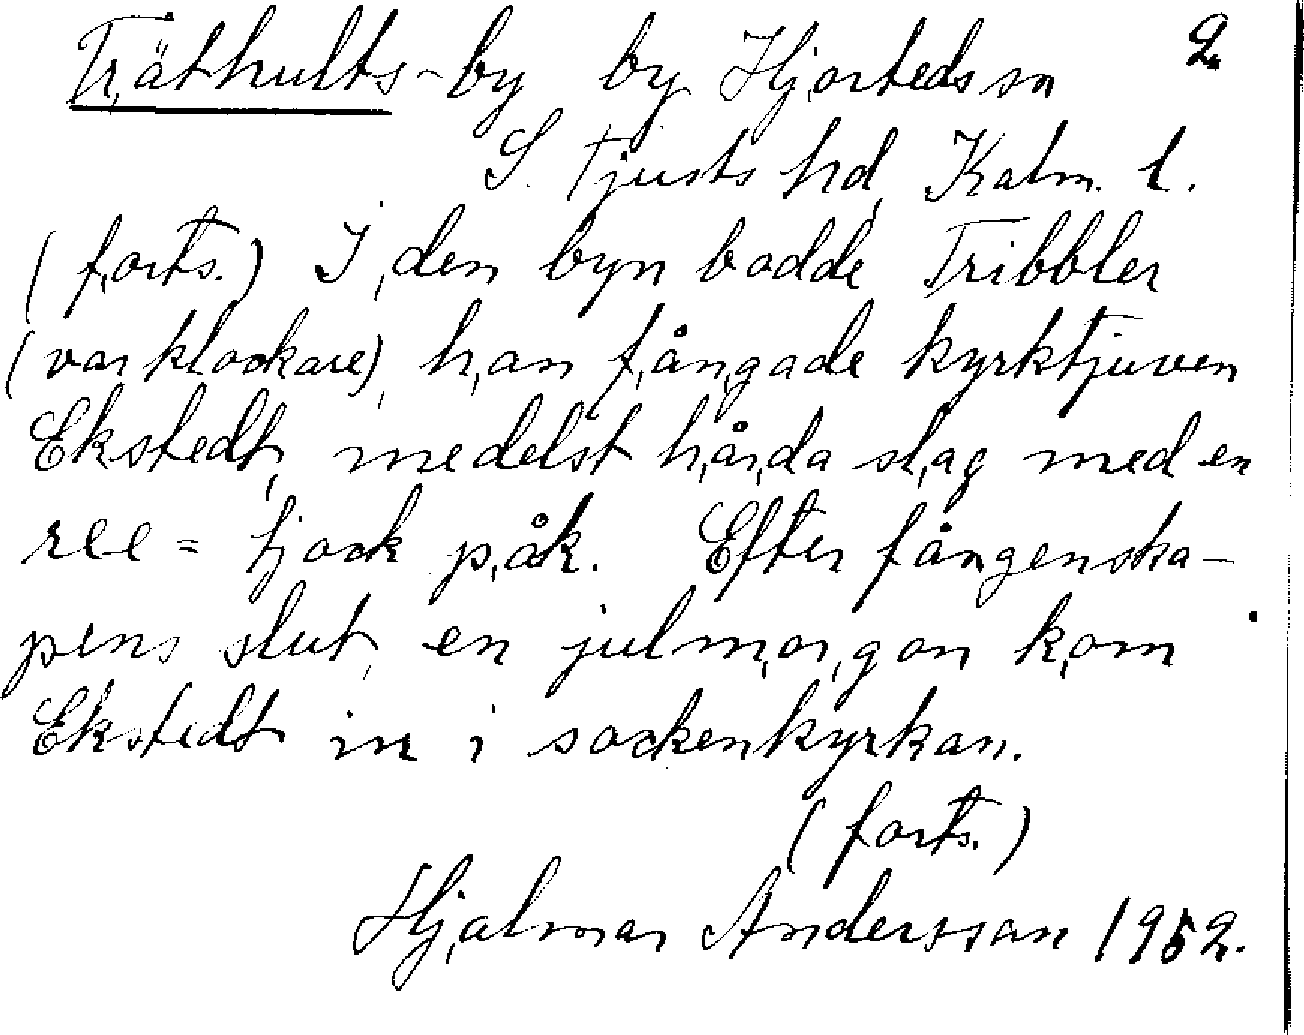 Träthults-by by Hjorteds sn 2.
S. Tjusts hd, Kalm. l.
(forts.) I den byn bodde Tribbler
(var klockare), han fångade kyrktjuven
Ekstedt, medelst hårda slag med en
ree = tjock påk. Efter fångenska-
pens slut, en julmorgon kom
Ekstedt in i sockenkyrkan.
(forts.)
Hjalmar Andersson 1952.